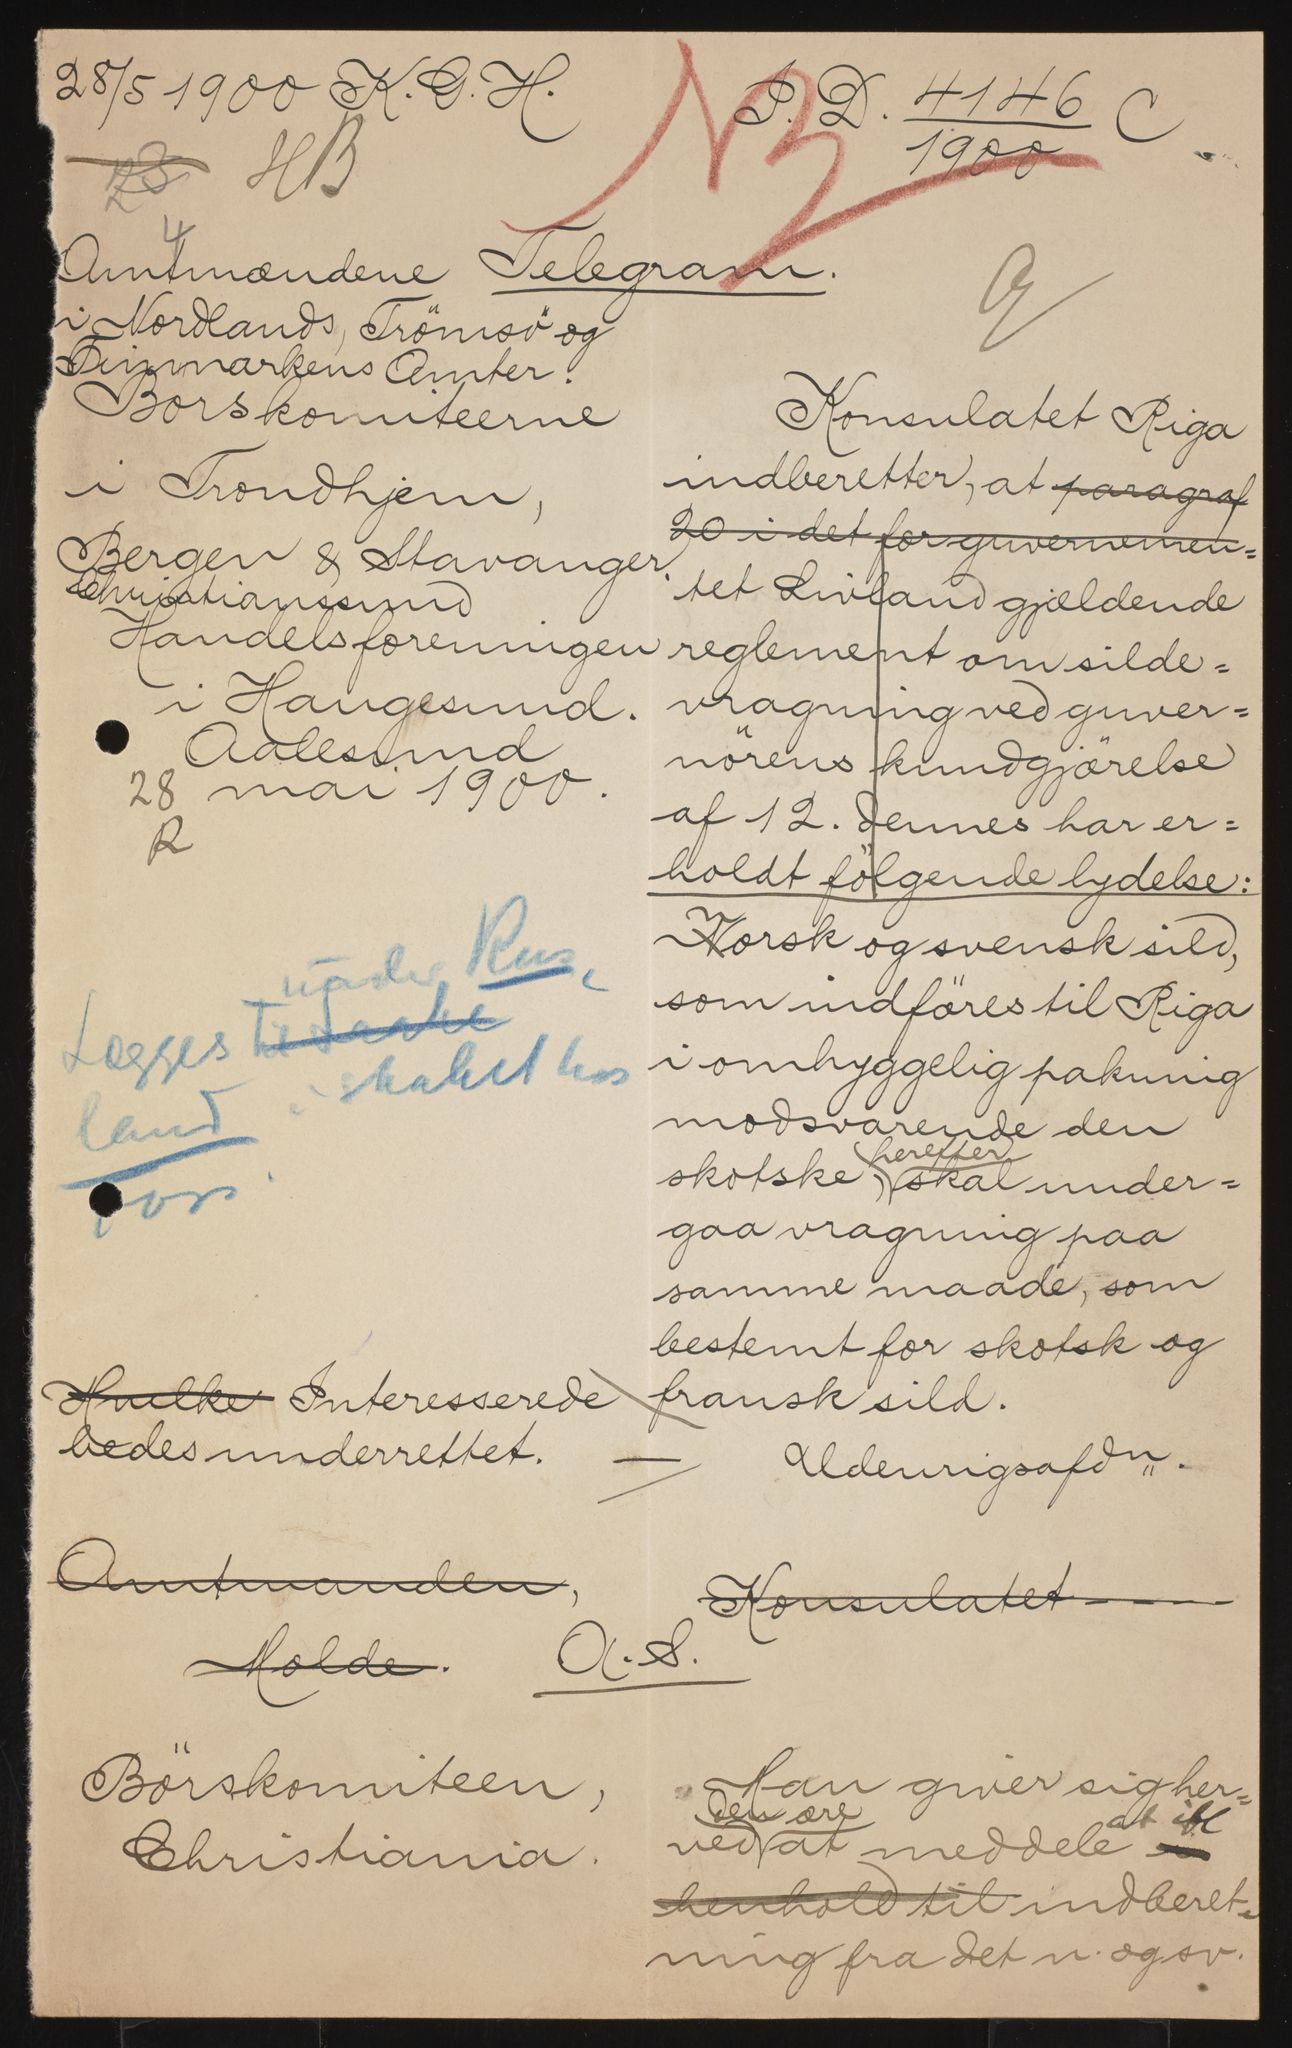 28/5 1900 K. G. H.
HB
J. D. 4146 C
1900
4
Amtmændene
i Nordlands, Trömsö og
Finmarkens Amter.
Börskomiteerne
i Trondhjem,
Bergen & Stavanger.
Christianssund
Handelsforeningen
i Haugesund.
Aalesund
28 mai 1900.
R
Telegram.
Konsulatet Riga
indberetter, at paragraf
20 i det for guvernemen=
tet Livland gjældende
reglement om silde=
vragning ved guver=
nörens kundgjörelse
af 12. dennes har er=
holdt fölgende lydelse:
Norsk og svensk sild,
som indföres til Riga
i omhyggelig pakning
modsvarende den
herefter
skotske, skal under=
gaa vragning paa
samme maade, som
bestemt for skotsk og
fransk sild.
Udenrigsafdn.
under Rus,
Lægges til
land i skabet hos
Hvilke Interesserede
bedes underrettet.
Amtmanden,
Molde.
Konsulatet
A. S.
Börskomiteen,
Christiania.
Man giver sig her=
den ære at ifl
ved at meddele
henhold til indberet=
ning fra det n. og sv.